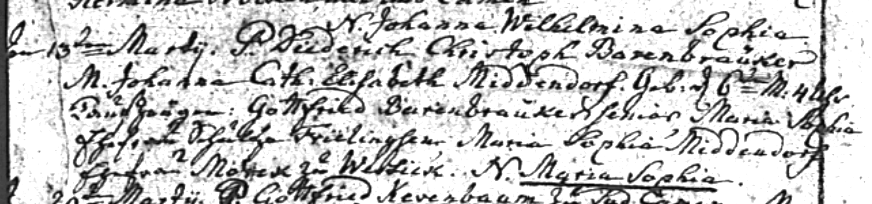 N. Johanna Wilhelmina Sophia
13te Martij. P. Diederich Christoph Barenbraüker
M. Johanna Cath. Elisabeth Middendorf. Geb. d 6te M. 4 Uhr
Taufzeugen: Gottfried Barenbraüker senior Maria Sophia
Ehefrau Schultze Frielinghsen Maria Sophia Middendorf
Ehefrau zu N. Maria Sophia.
20te Martij. P. Gottfried Kevenbaum zu Camen